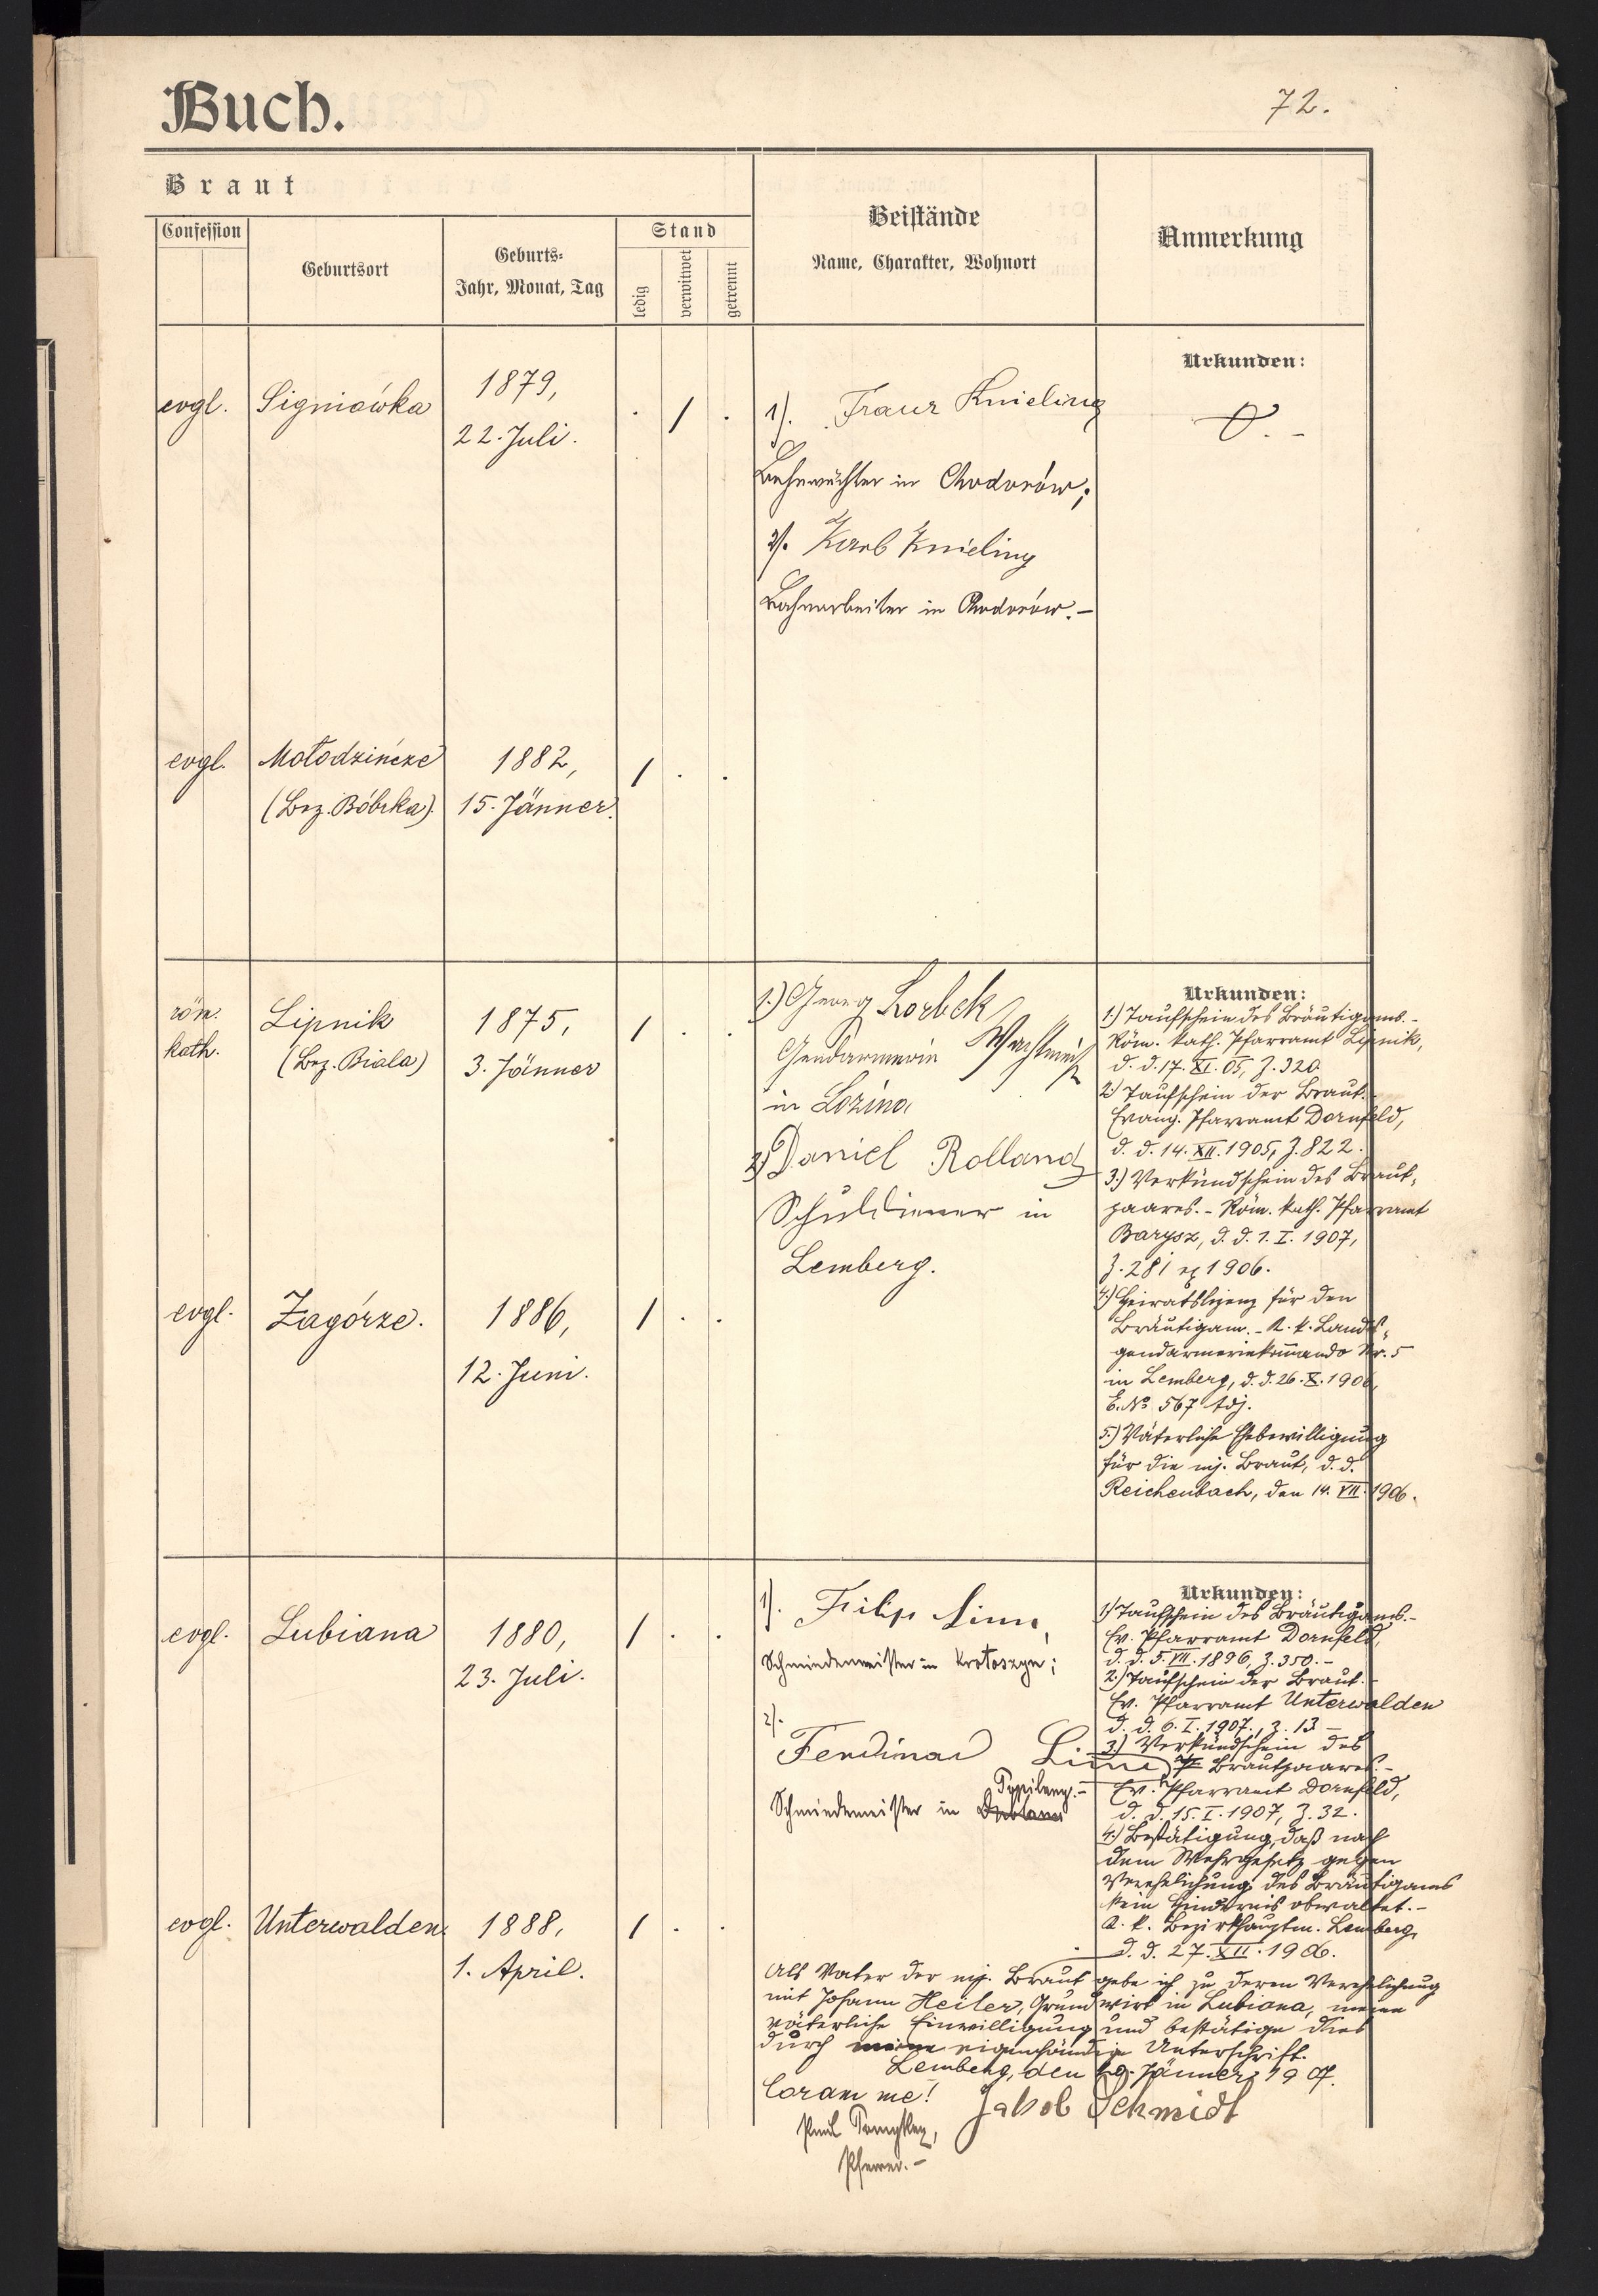 Buch.
72.
Braut
Confession
Geburtsort
Geburts-
Jahr, Monat, Tag
Stand
ledig
verwitwet
getrennt
Beistände
Name, Charakter, Wohnort
Anmerkung
Urkunden:
evgl. Signiówka 1879,
22. Juli.
. / .
1). Franz Knieling
Bahnwächter in Chodorów;
2). Karl Knieling
Bahnarbeiter in Chodorów.-
evgl. Mołodzińcze 1882, / . .
(Bez. Bóbrka). 15. Jänner.
röm. Lipnik 1875, / . .
kath. (Bez. Biala) 3. Jänner
1.) Georg Lorbek
Gendarmerie Wachtmeist
in Lozina
2) Daniel Rolland
Schuldiener in
Lemberg.
Urkunden:
1.) Taufschein des Bräutigams.-
Röm. kath. Pfarramt Lipnik,
d. d. 17. XI. 05, Z. 320
2.) Taufschein der Braut.-
Evang. Pfarramt Dornfeld,
d. d. 14. XII. 1905, Z. 822.
3.) Verkündschein des Braut-
paares.- Röm. kath. Pfarramt
Barysz, d. d. 1. I. 1907,
Z. 281 ex 1906.
4.) Heiratslizenz für den
Bräutigam.- K. k. Landes-
gendarmeriekommando Nr. 5
in Lemberg, d. d. 26. X. 1906,
E. No 567 adj.
5.) Väterliche Ehebewilligung
für die mj. Braut, d. d.
Reichenbach, den 14. VII. 1906.
evgl. Zagórze. 1886, / . .
12. Juni.
evgl. Lubiana 1880, / . .
23. Juli.
1). Filip Linn,
Schmiedemeister in Krotoszyn;
2).
Ferdinad Linn
Schmiedemeister in
Urkunden:
1.) Taufschein des Bräutigams.-
Ev. Pfarramt Dornfeld,
d. d. 5. VII. 1896, Z. 350.-
2.) Taufschein der Braut.-
Ev. Pfarramt Unterwalden
d. d. 6. I. 1907., Z. 13 -
3.) Verkündschein des
Brautpaares.-
Ev. Pfarramt Dornfeld,
d. d. 15. I. 1907, Z. 32.
4.) Bestätigung, daß nach
dem Wehrgesetz gegen
Verehelichung des Bräutigams
kein Hindernis obwaltet.-
K. k. Bezirkshauptm. Lemberg,
d. d. 27. XII. 1906.
evgl. Unterwalden. 1888, / . .
1. April.
Als Vater der mj. Braut gebe ich zu deren Verehelichung
mit Johann Heiler, Grundwirt in Lubiana, meine
väterliche Einwilligung und bestätige dies
durch meine eigenhändige Unterschrift.
Lemberg, den Jänner 1907.
Coram me! Jakob Schmidt
Paul
Pfarrer.-